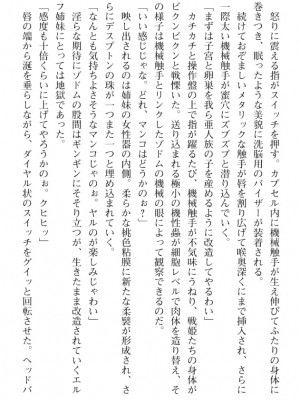 怒りに震える指がスイッチを押す。カプセル内に機械触手が生え伸びてふたりの身体に
巻きつき、眠ったような美貌に洗脳用のバイザーが装着される。
続けておぞましいメタリックな触手が唇を割り広げて喉奥深くにまで挿入され、さらに
一際太い機械触手が蜜穴にズブズブと潜り込んでいく。
「まずは子宮と卵巣を我ら亜人族の子を産めるように改造してやるわい」
カチカチと操作盤の上で指が躍るたび、機械触手が不気味にうねり、戦姫たちの身体が
ビクンビクンと戦慄いた。送り込まれる極小の機性蟲が細胞レベルで肉体を造り替え、そ
の様子は機械触手とリンクしたゾドムの機械の眼によって観察できるのだ。
「いい感じじゃな。どれ、マンコはどうかのぉ？」
映し出されるのは姉妹の女性器の内側。柔らかな桃色粘膜に新たな柔襞が形成され、さ
らにデスプトンの珠が、つまた一つと埋め込まれていく。
「なんとも気持ちよさそうなマンコじゃのぉ。ヤルのが楽しみじゃわい」
淫らな期待にゾドムの股間はギンギンにそそり立つが、生きたまま改造されていくエル
フ姉妹にとっては地獄であった。
「感度も十倍くらいに上げてやろうかのぉ。クヒヒッ」
唇の端から涎を垂らしながら、ダイヤル状のスイッチをグイッと回転させた。ヘッドバ